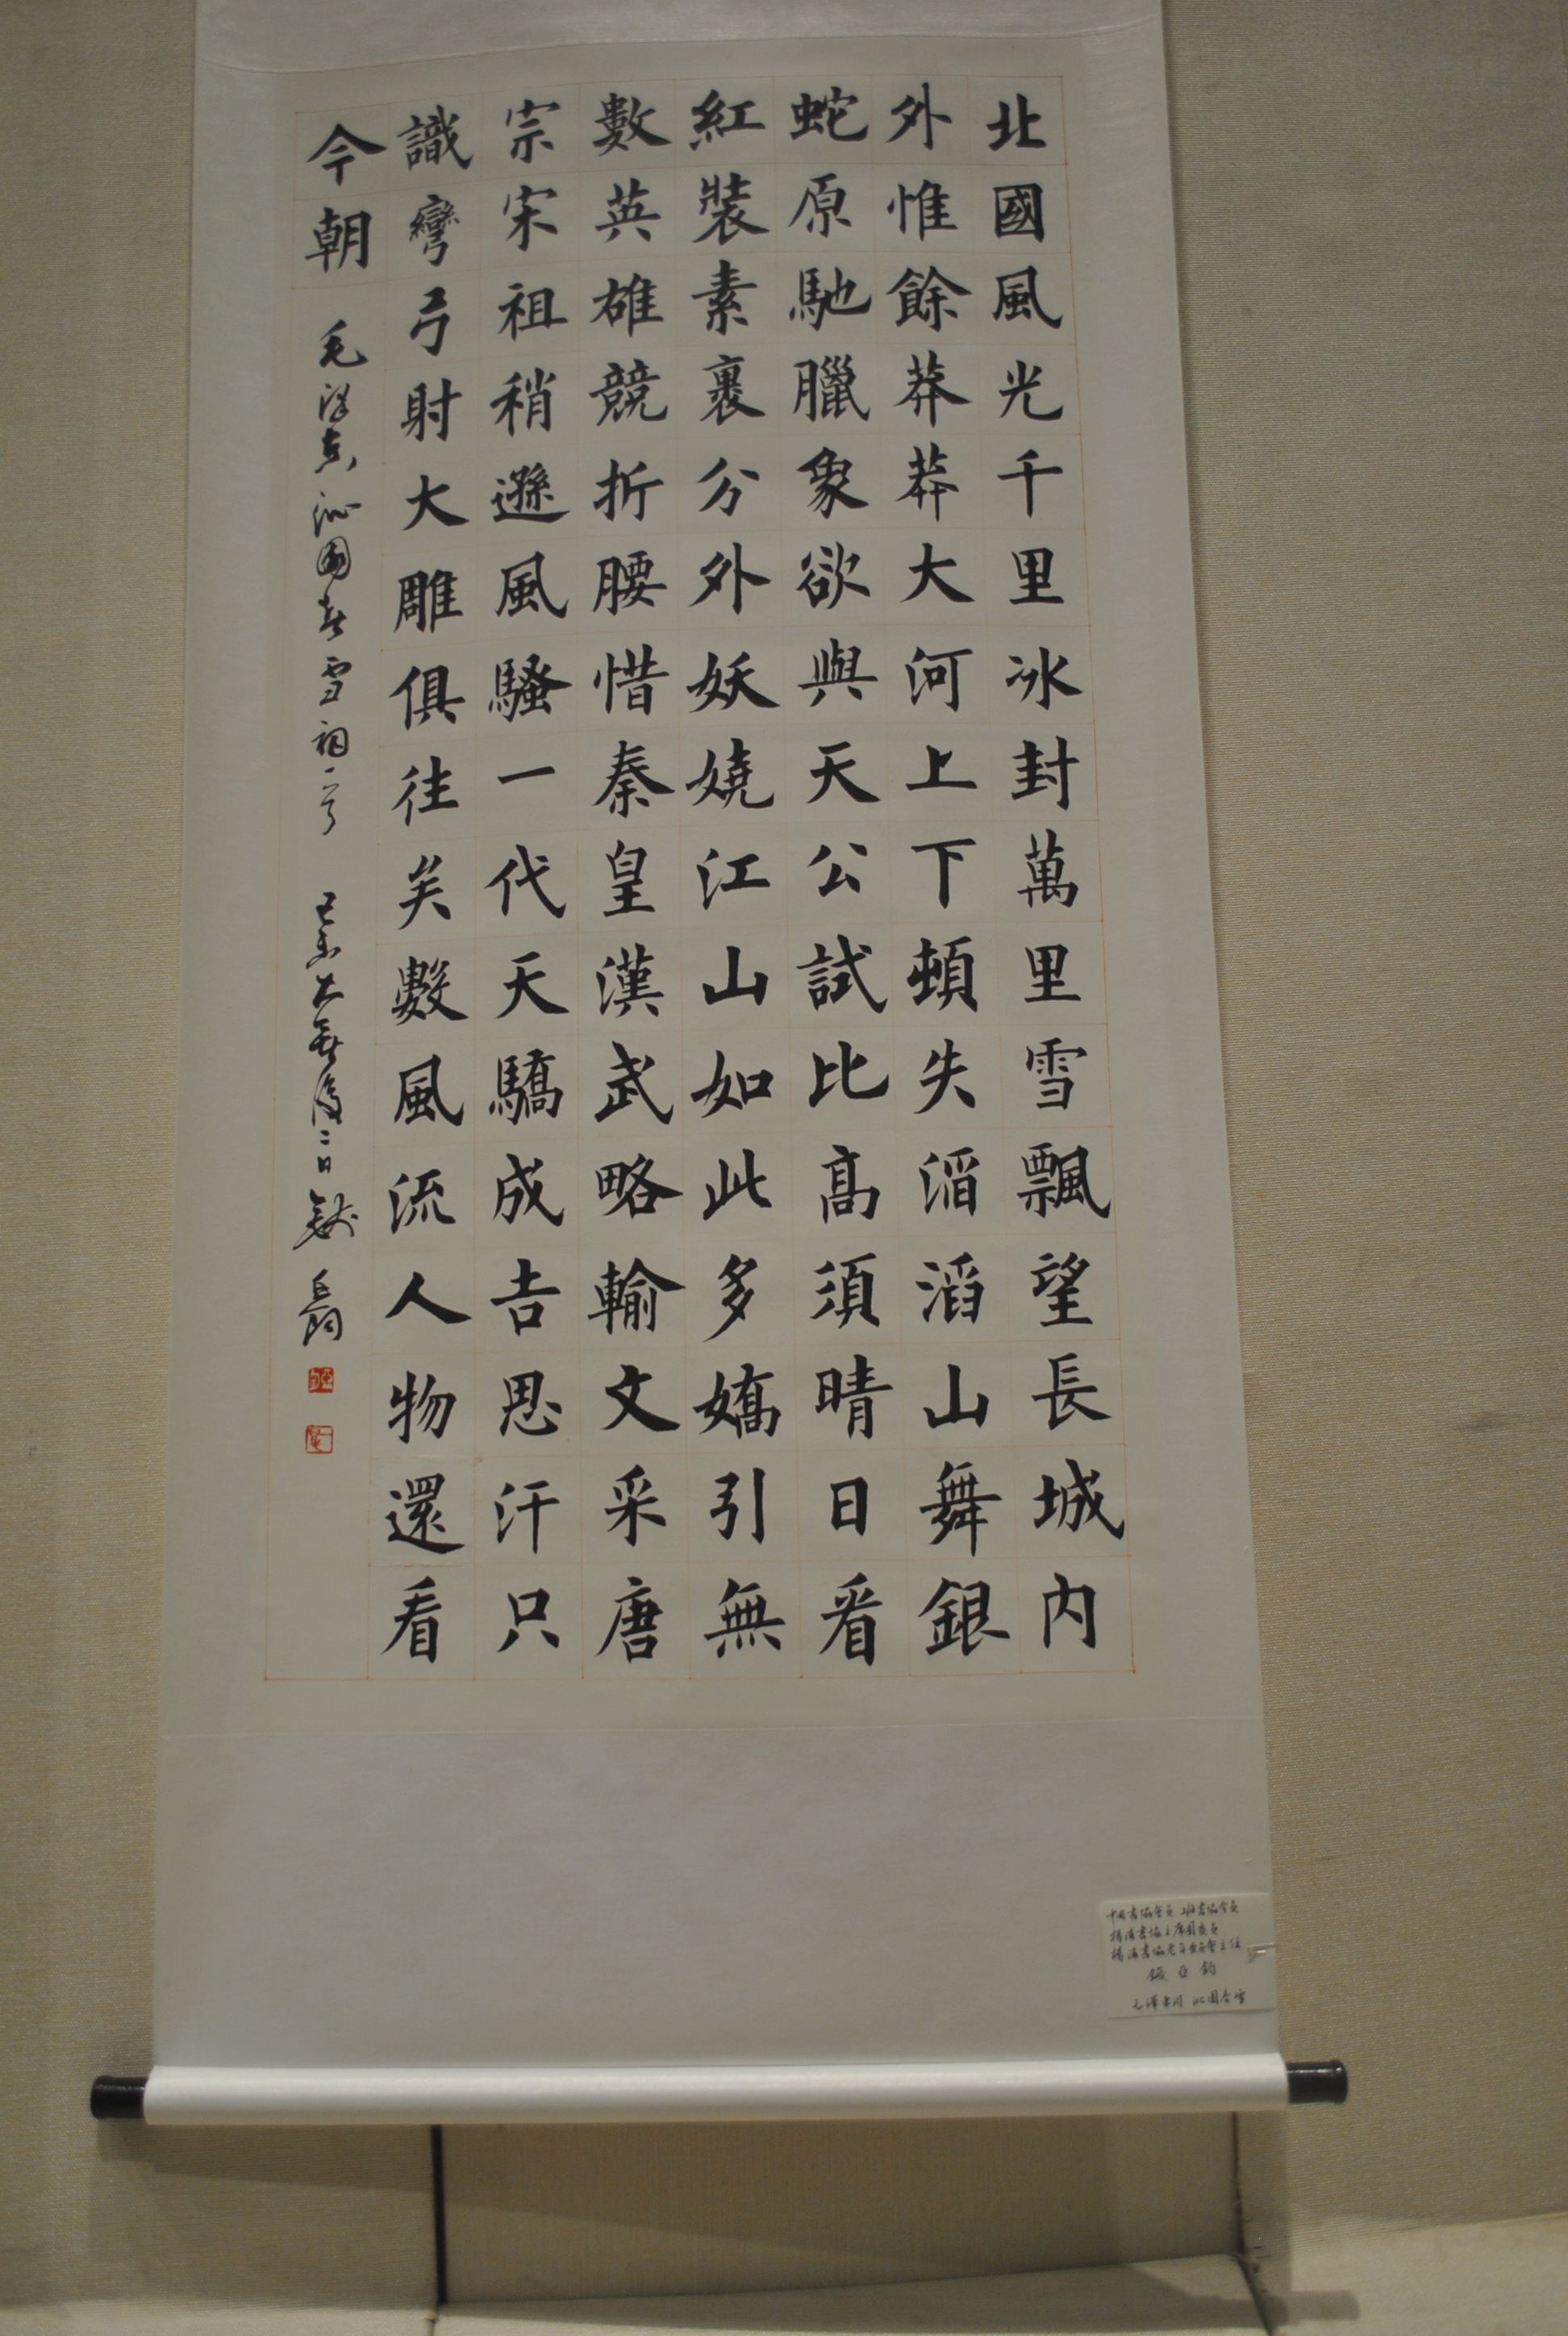 北國風光千里冰封萬里雪飄望長城内
外惟餘莽莽大河上下頓失滔滔山舞銀
蛇原馳臘象欲與天公試比高須晴日看
紅裝素裹分外妖嬈江山如此多嬌引無
數英雄競折腰惜秦皇漢武略輸文采唐
宗宋祖稍遜風騷一代天驕成吉思汗只
識彎弓射大雕俱往矣數風流人物還看
今朝
毛澤東沁園春雪詞一首
中国书协会员 上海书协会员
楊浦书协
楊浦书协老年
錢亞鈞
毛澤東詞 沁園春雪